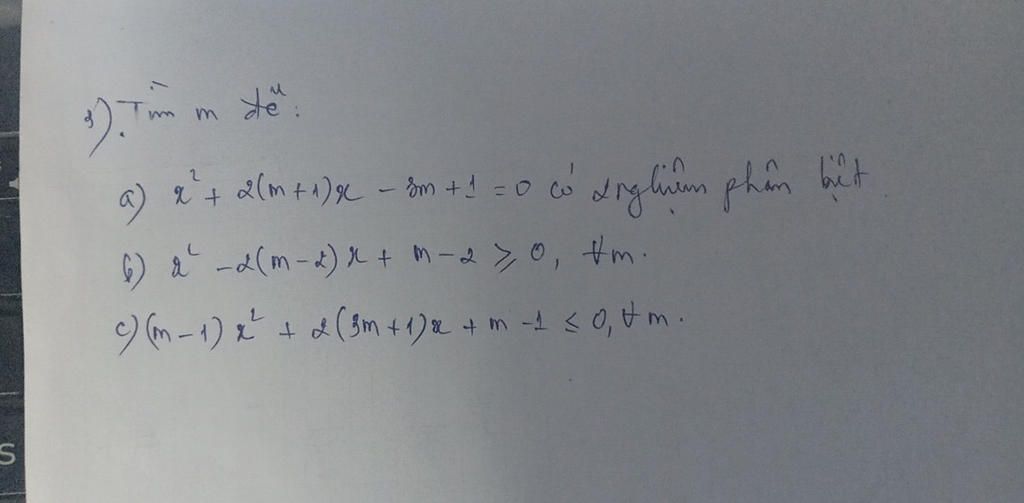 3). Tìm m để:
a) x² + 2(m+1)x - 3m + 1 = 0 có 2 nghiệm phân biệt
b) x² - 2(m-2)x + m - 2 ≥ 0, ∀m.
c) (m-1)x² + 2(3m+1)x + m - 1 ≤ 0, ∀m.
S